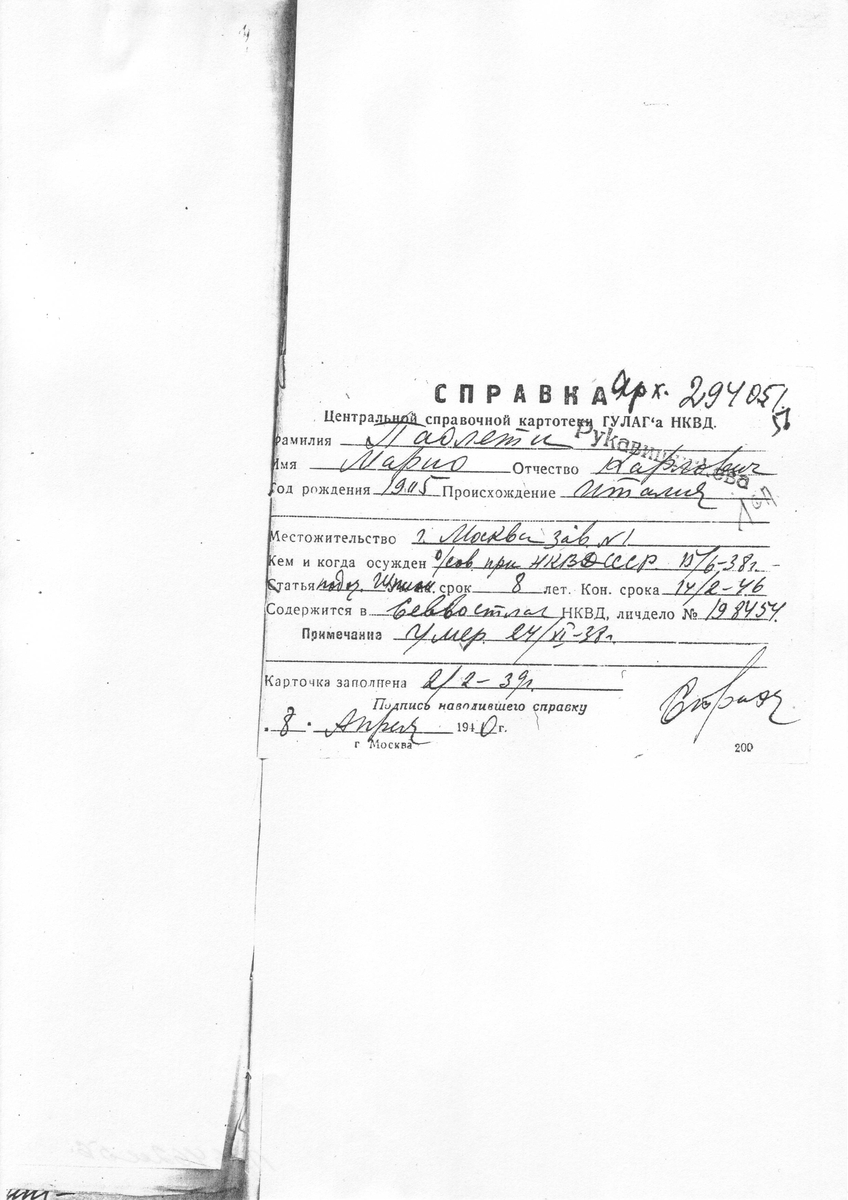 СПРАВКА Арх. 294051.
Центральной справочной картотеки ГУЛАГ'а НКВД.
Рукавишникова
Фамилия Паолети
Имя Марио Отчество Карлович
Год рождения 1905 Происхождение Италия
Местожительство г. Москва зав. №1
Кем и когда осужден о/сов. при НКВД СССР 15/6-38г. -
Статья подоз. Шпион. срок 8 лет. Кон. срока 14/2-46
Содержится в Севвостлаг НКВД, личдело № 198454.
Примечания Умер. 24/XI-38г.
Карточка заполнена 2/2-39г.
Подпись наводившего справку
„8“ Апреля 1940 г.
г Москва 200